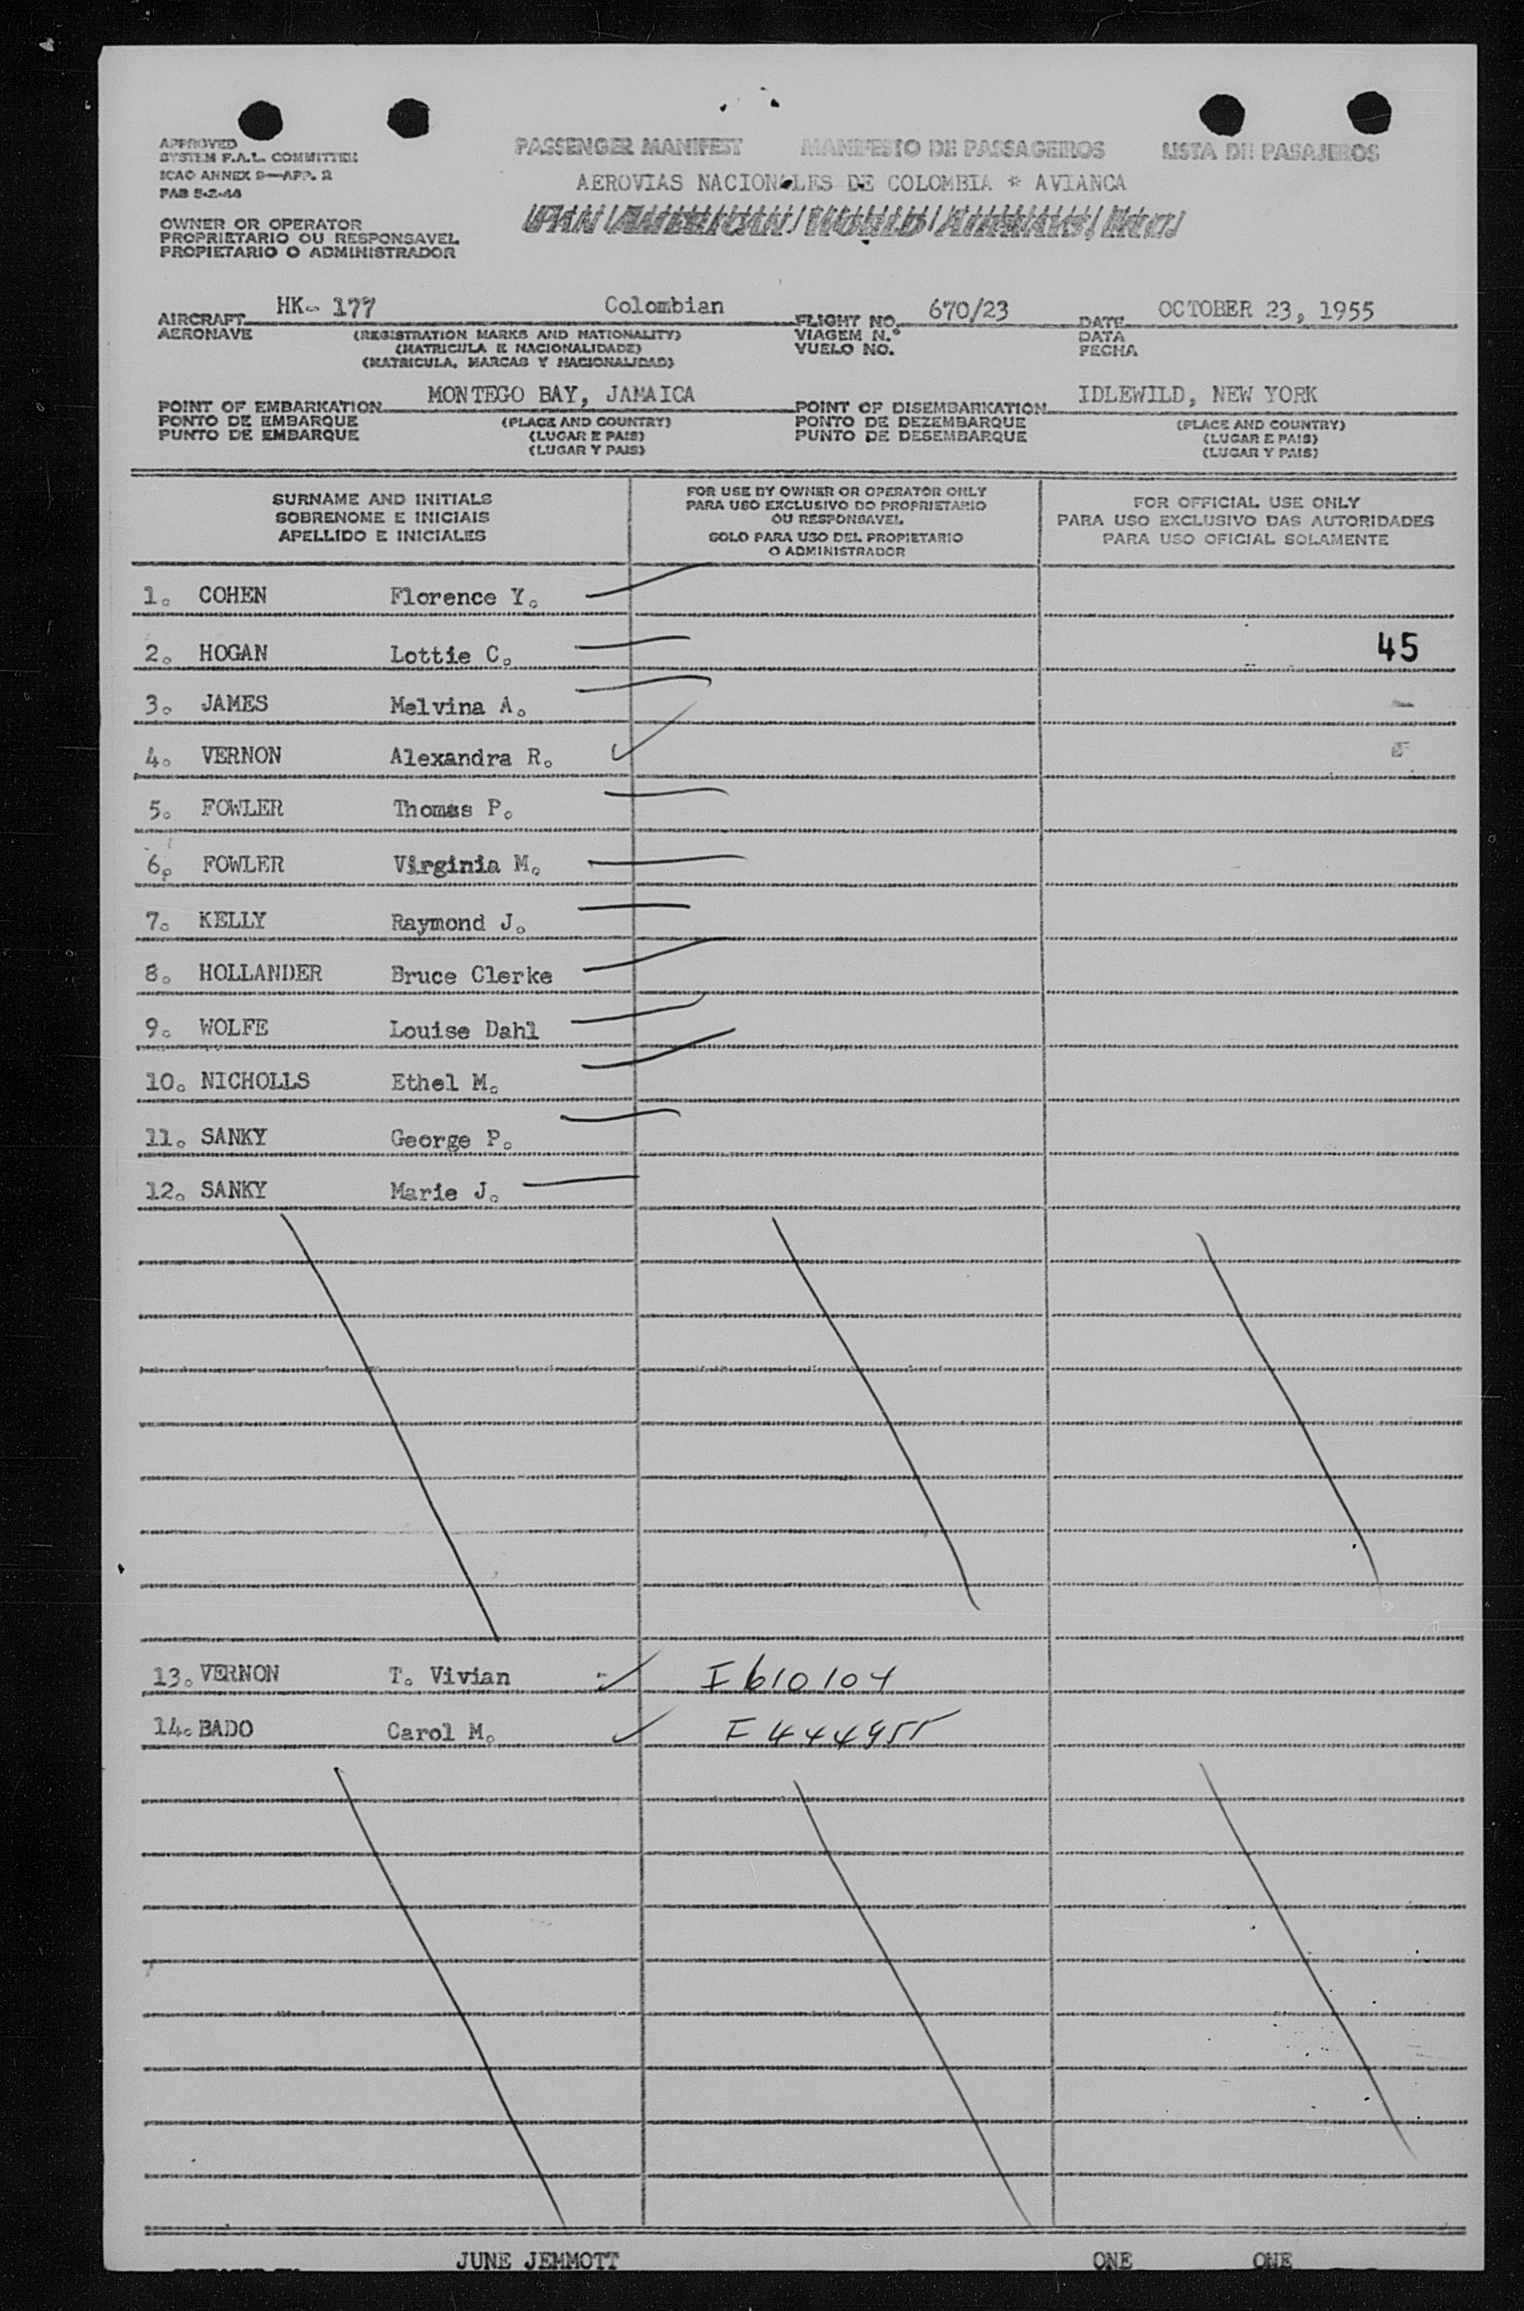 APPROVED
SYSTEM F.A.L. COMMITTEE
ICAO ANNEX 9—APP. 2
PAB 5-2-46
PASSENGER MANIFEST MANIFESTO DE PASSAGEIROS LISTA DE PASAJEROS
AEROVIAS NACIONALES DE COLOMBIA * AVIANCA
PAN AMERICAN WORLD AIRWAYS, INC.
OWNER OR OPERATOR
PROPRIETARIO OU RESPONSAVEL
PROPIETARIO O ADMINISTRADOR
AIRCRAFT HK- 177 Colombian FLIGHT NO. 670/23 DATE OCTOBER 23, 1955
AERONAVE (REGISTRATION MARKS AND NATIONALITY) VIAGEM N.º DATA
(MATRICULA E NACIONALIDADE) VUELO NO. FECHA
(MATRICULA, MARCAS Y NACIONALIDAD)
POINT OF EMBARKATION MONTEGO BAY, JAMAICA POINT OF DISEMBARKATION IDLEWILD, NEW YORK
PONTO DE EMBARQUE (PLACE AND COUNTRY) PONTO DE DEZEMBARQUE (PLACE AND COUNTRY)
PUNTO DE EMBARQUE (LUGAR E PAIS) PUNTO DE DESEMBARQUE (LUGAR E PAIS)
(LUGAR Y PAIS) (LUGAR Y PAIS)
SURNAME AND INITIALS
SOBRENOME E INICIAIS
APELLIDO E INICIALES
FOR USE BY OWNER OR OPERATOR ONLY
PARA USO EXCLUSIVO DO PROPRIETARIO
OU RESPONSAVEL
SOLO PARA USO DEL PROPIETARIO
O ADMINISTRADOR
FOR OFFICIAL USE ONLY
PARA USO EXCLUSIVO DAS AUTORIDADES
PARA USO OFICIAL SOLAMENTE
1. COHEN Florence Y.
2. HOGAN Lottie C. 45
3. JAMES Melvina A.
4. VERNON Alexandra R.
5. FOWLER Thomas P.
6. FOWLER Virginia M.
7. KELLY Raymond J.
8. HOLLANDER Bruce Clerke
9. WOLFE Louise Dahl
10. NICHOLLS Ethel M.
11. SANKY George P.
12. SANKY Marie J.
13. VERNON T. Vivian I 610104
14. BADO Carol M. I 444955
JUNE JEMMOTT ONE ONE